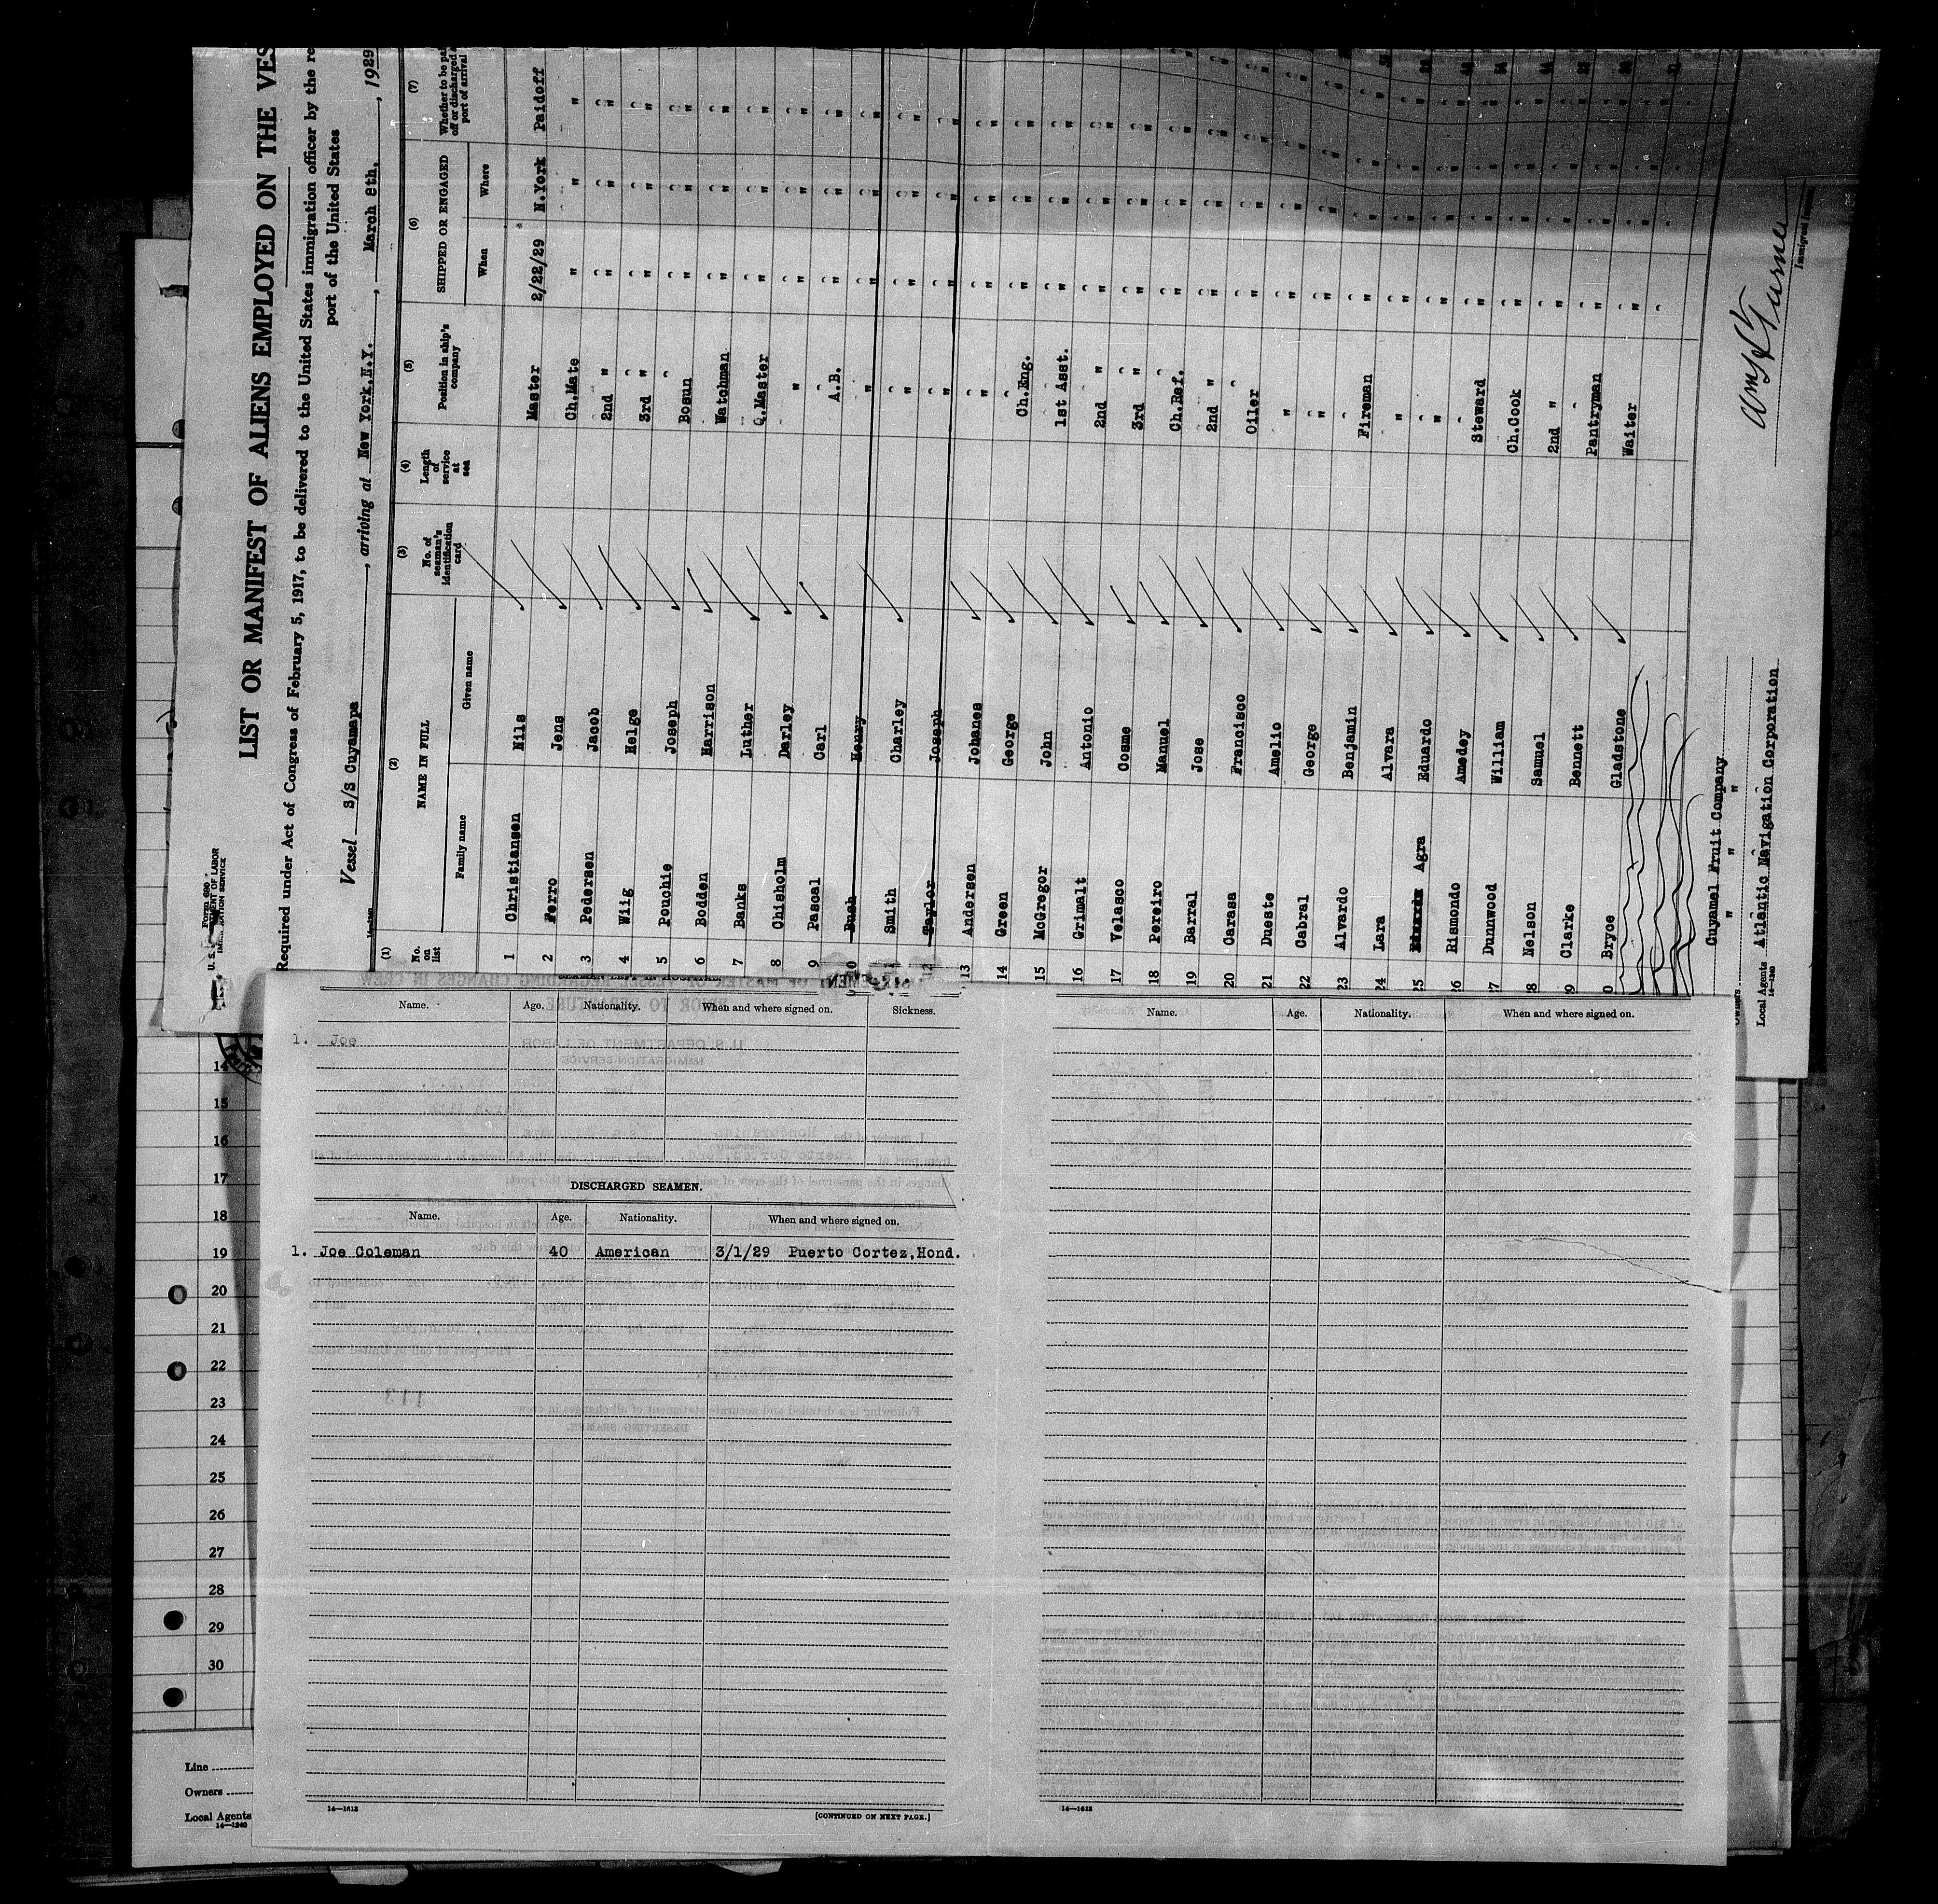 Form 680
U. S. DEPARTMENT OF LABOR
IMMIGRATION SERVICE
LIST OR MANIFEST OF ALIENS EMPLOYED ON THE VES
Required under Act of Congress of February 5, 1917, to be delivered to the United States immigration officer by the re
port of the United States
Vessel S/S Cuyamapa, arriving at New York.N.Y., March 8th, 1929
14-1240
(1) (2) (3) (4) (5) (6) (7)
No. on list NAME IN FULL No. of seaman's identification card Length of service at sea Position in ship's company SHIPPED OR ENGAGED Whether to be pai off or discharged a port of arrival
Family name Given name When Where
1 Christiansen Nils Master 2/22/29 N.York Paidoff
2 Ferro Jens Ch.Mate " " "
3 Pedersen Jacob 2nd " " " "
4 Wiig Helge 3rd " " " "
5 Pouchie Joseph Bosun " " "
6 Bodden Harrison Watchman " " "
7 Banks Luther Q.Master " " "
8 Chisholm Darley " " " "
9 Pascal Carl A.B. " " "
10 Bush Henry " " " "
11 Smith Charley " " " "
12 Taylor Joseph " " " "
13 Andersen Johanes " " " "
14 Green George Ch.Eng. " " "
15 McGregor John 1st Asst. " " "
16 Grimalt Antonio 2nd " " " "
17 Velasco Cosme 3rd " " " "
18 Pereiro Manuel Ch.Ref. " " "
19 Barral Jose 2nd " " " "
20 Carasa Francisco Oiler " " "
21 Dueste Amelio " " " "
22 Cabral George " " " "
23 Alvardo Benjamin Fireman " " "
24 Lara Alvara " " " "
25 Agra Eduardo " " " "
26 Rismondo Amedey Steward " " "
27 Dunnwood William Ch.Cook " " "
28 Nelson Samuel 2nd " " " "
29 Clarke Bennett Pantryman " " "
30 Bryce Gladstone Waiter " " "
Cuyamel Fruit Company
Owners " " "
Local Agents Atlantic Navigation Corporation
14-1240
Turner
Immigrant Inspector
Name. Age. Nationality. When and where signed on. Sickness.
1. Joe
DISCHARGED SEAMEN.
Name. Age. Nationality. When and where signed on.
1. Joe Coleman 40 American 3/1/29 Puerto Cortez,Hond.
14-1618
[CONTINUED ON NEXT PAGE.]
Name. Age. Nationality. When and where signed on.
14-1618
14
15
16
17
18
19
20
21
22
23
24
25
26
27
28
29
30
Line
Owners
Local Agents
14-1240